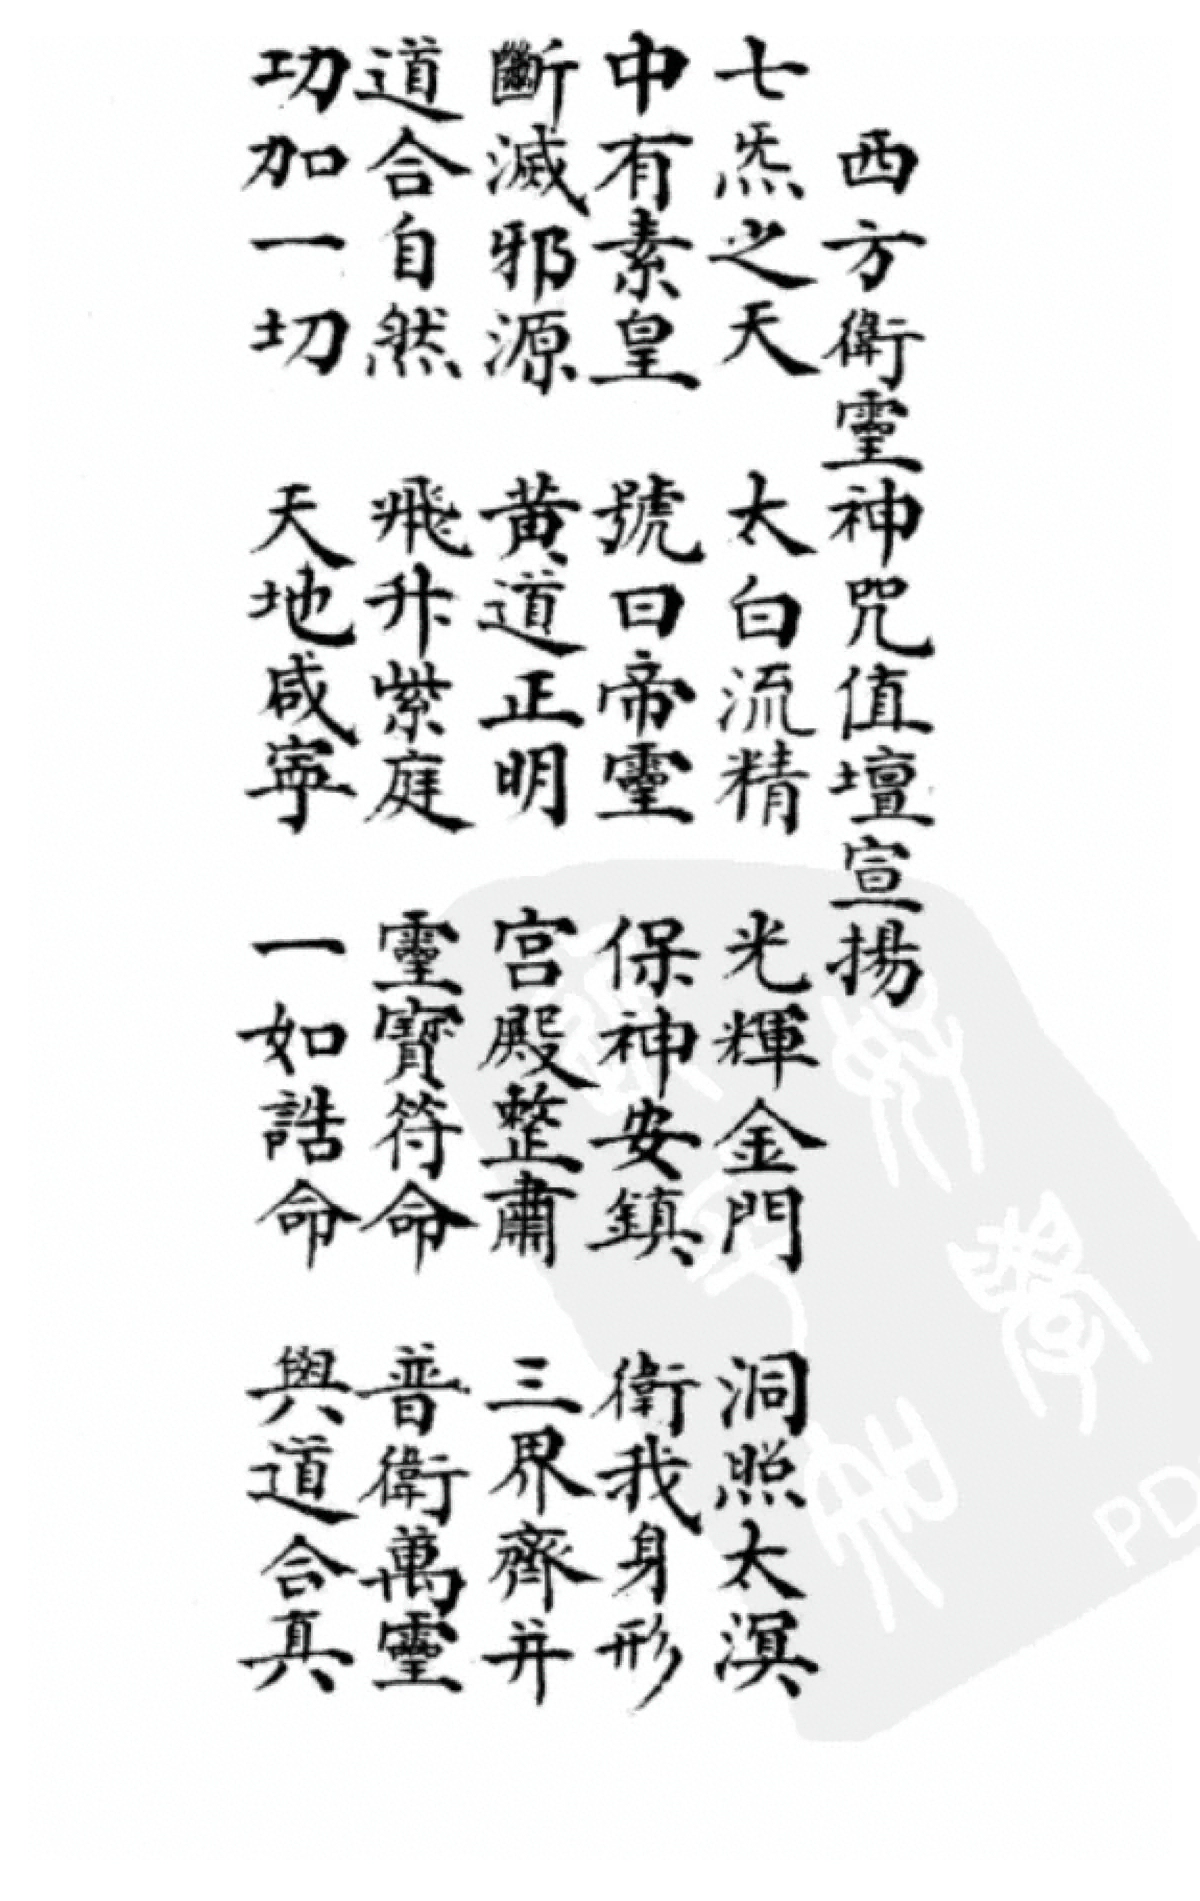 西方衛靈神咒值壇宣揚
七炁之天　太白流精　光輝金門　洞照太溟
中有素皇　號曰帝靈　保神安鎮　衛我身形
斷滅邪源　黃道正明　宮殿整肅　三界齊并
道合自然　飛升紫庭　靈寶符命　普衛萬靈
功加一切　天地咸寧　一如誥命　與道合真
PD